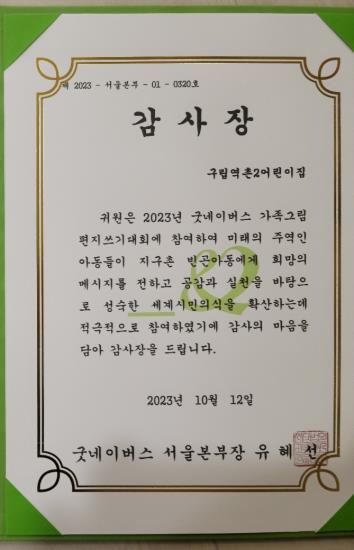 제 2023 - 서울본부 - 01 - 0320호
감 사 장
구립역촌2어린이집
귀원은 2023년 굿네이버스 가족그림
편지쓰기대회에 참여하여 미래의 주역인
아동들이 지구촌 빈곤아동에게 희망의
메시지를 전하고 공감과 실천을 바탕으
로 성숙한 세계시민의식을 확산하는데
적극적으로 참여하였기에 감사의 마음을
담아 감사장을 드립니다.
2023년 10월 12일
굿네이버스 서울본부장 유 혜 선